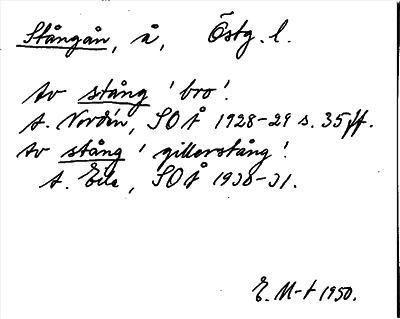 Stångån, å, Östg. l.
Av stång 'bro'.
A. Nordén, SOÅ 1928-29 s. 35 ff.
Av stång 'gillerstång'.
A. Ejle, SOÅ 1930-31.
E. M-t 1950.